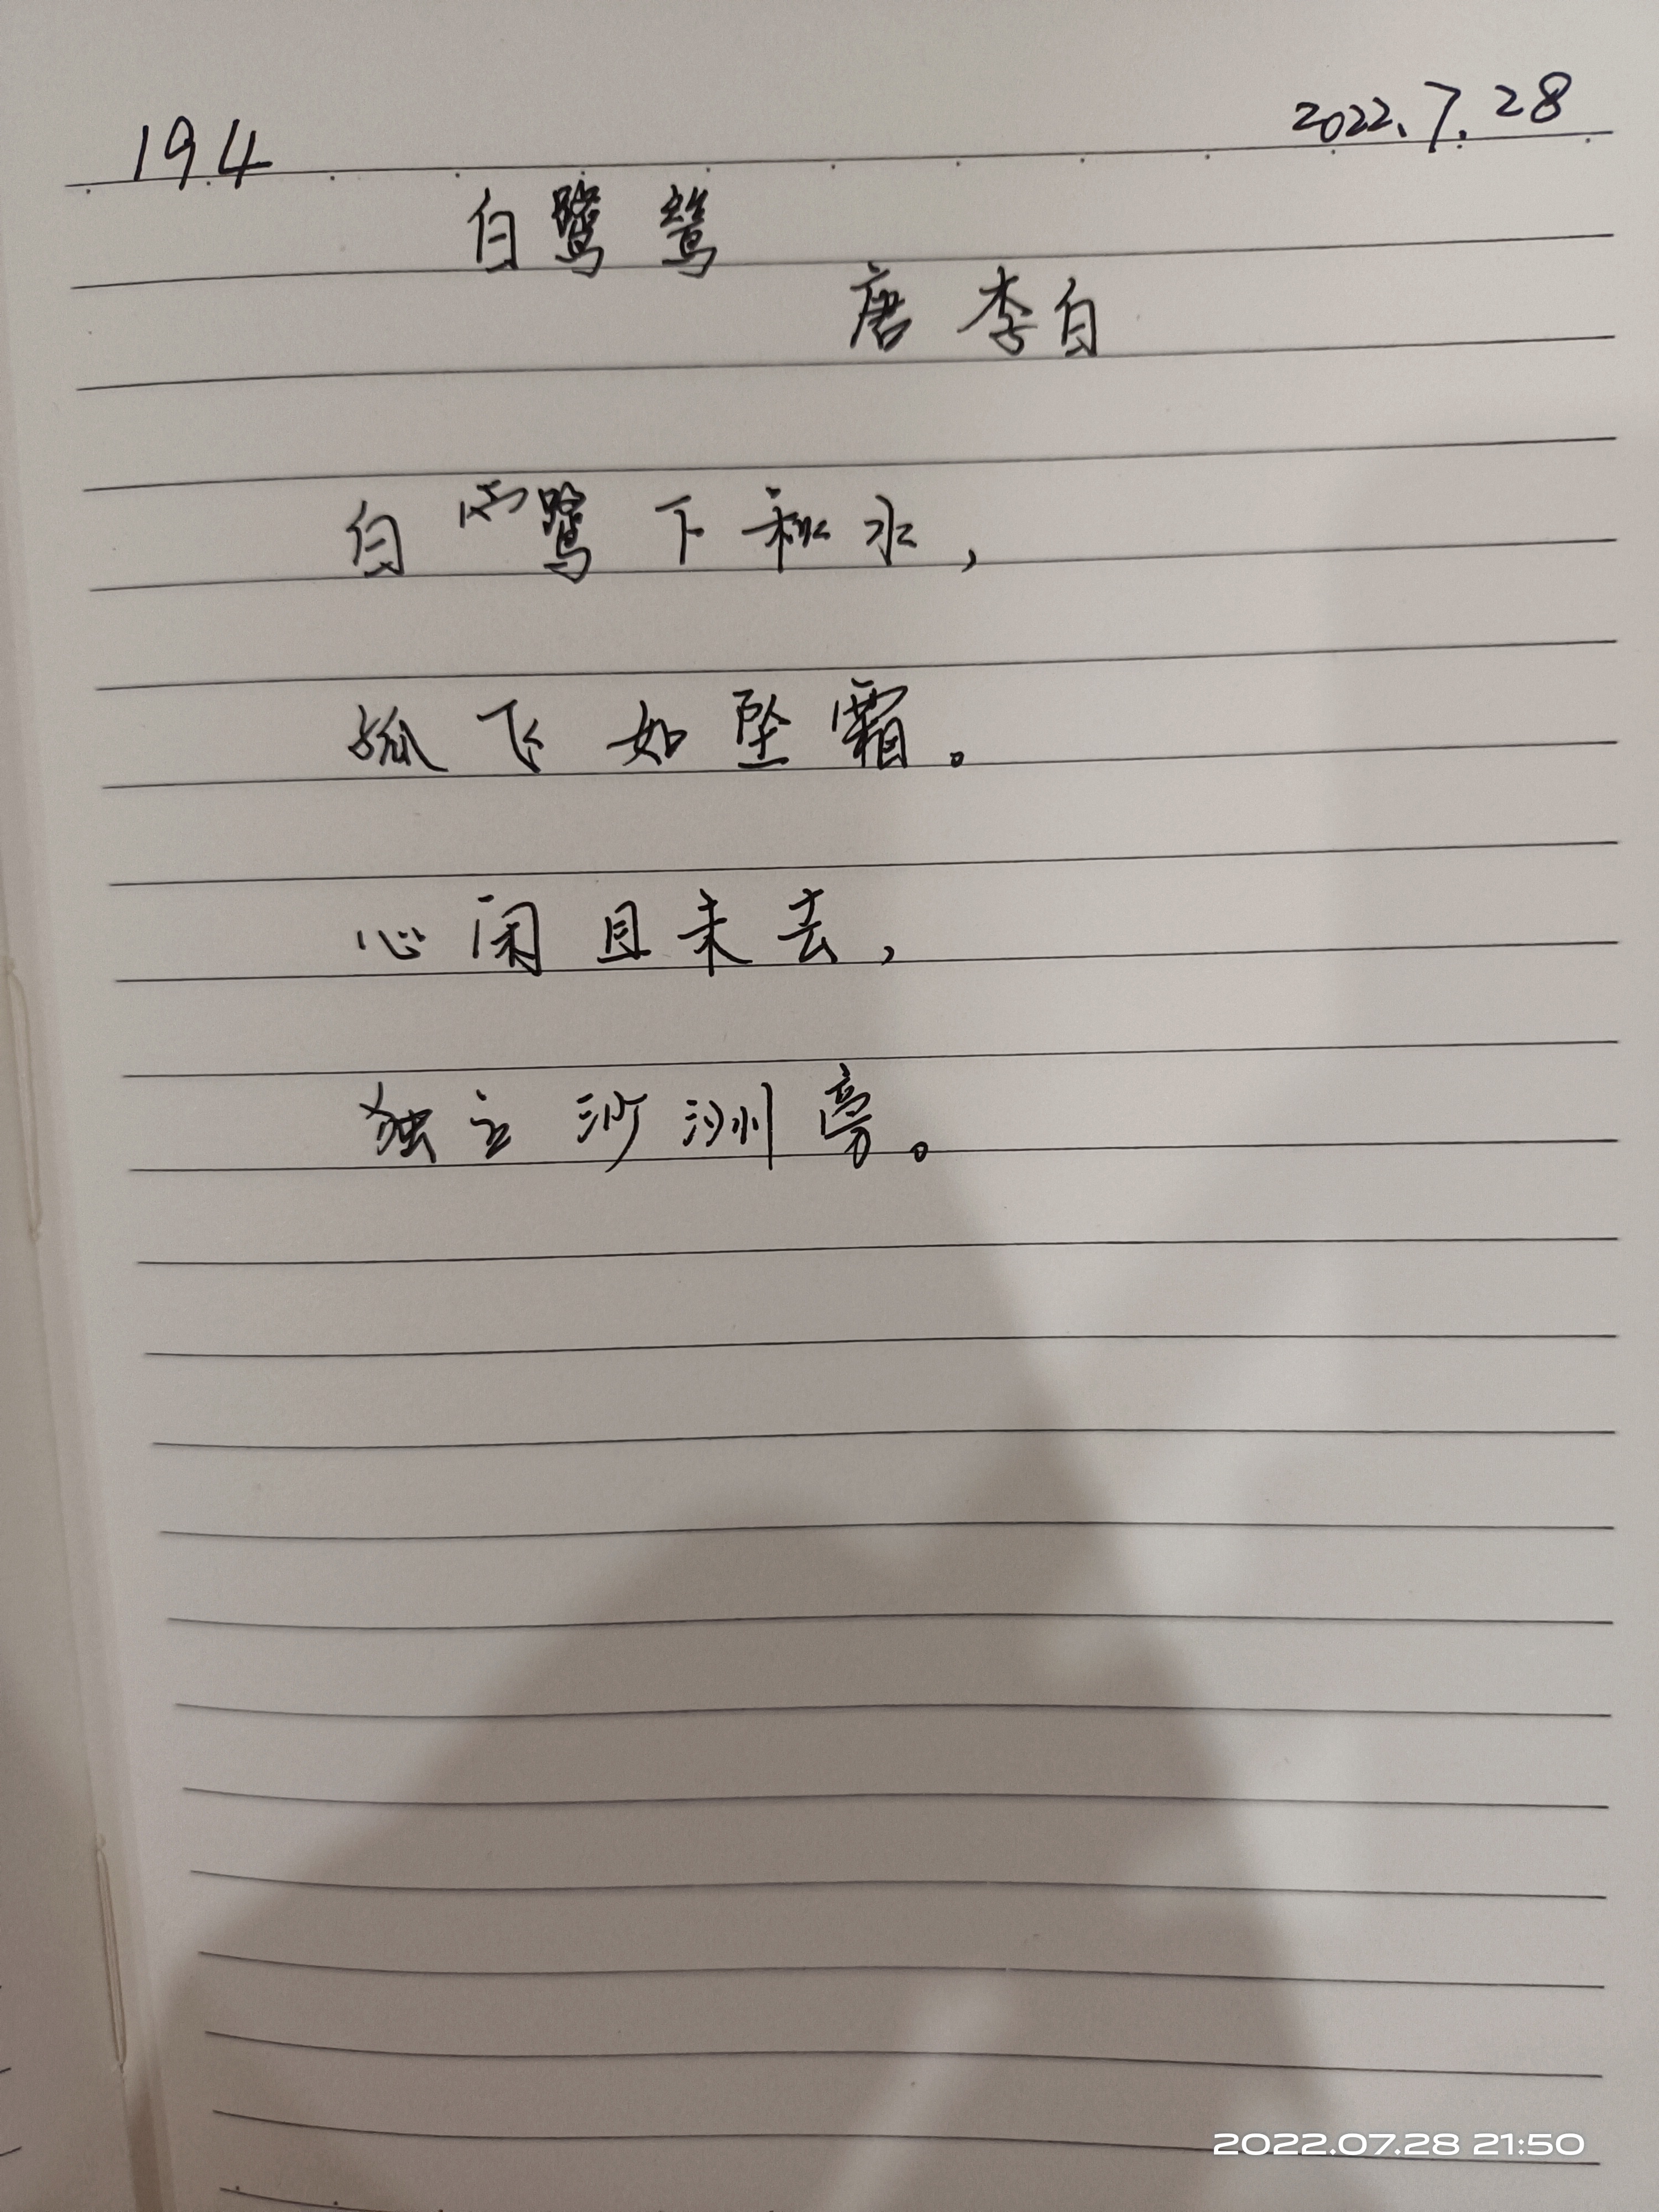 194 2022.7.28
白鹭鸶
唐 李白
白鹭下秋水，
孤飞如坠霜。
心闲且未去，
独立沙洲旁。
2022.07.28 21:50